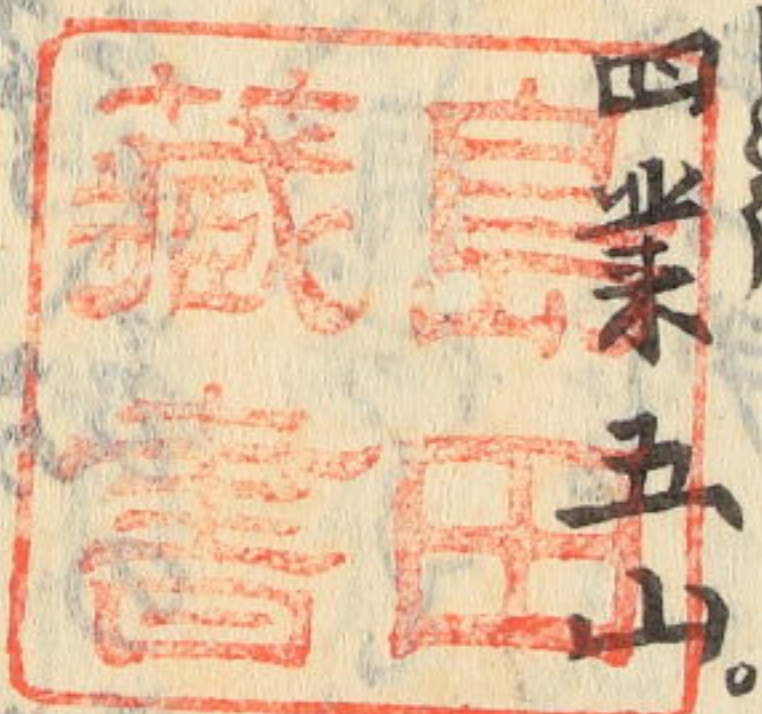 四業五山。
島田
藏書